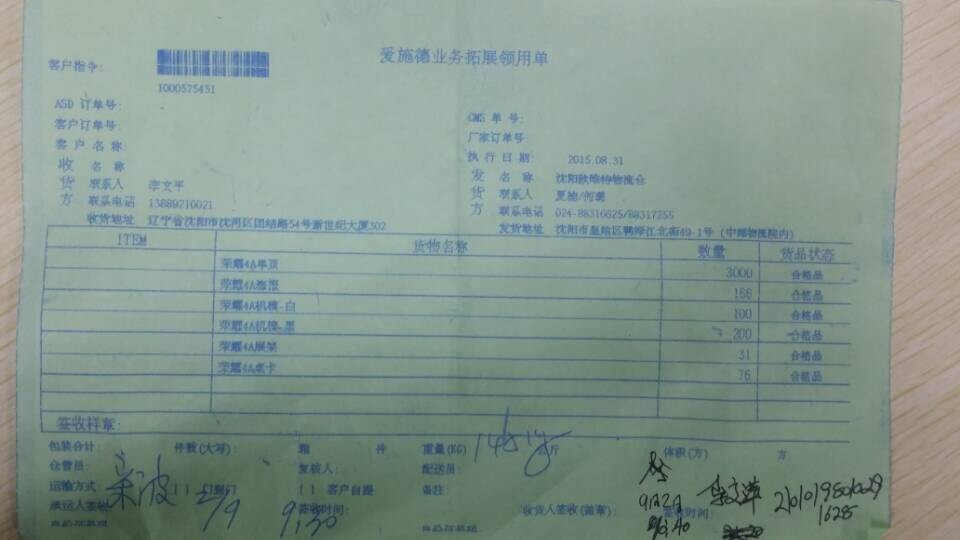 爱施德业务拓展领用单
客户指令:
1000575451
ASD 订单号:
客户订单号:
客 户 名 称:
CMS 单 号:
厂家订单号:
执 行 日 期: 2015.08.31
收货方
名 称
联系人 李文平
联系电话 13889210021
收货地址 辽宁省沈阳市沈河区团结路54号新世纪大厦302
发货方
名 称 沈阳欧唯特物流仓
联系人
联系电话 024-88316625/88317255
发货地址 沈阳市皇姑区鸭绿江北街49-1号 (中邮物流院内)
ITEM 货物名称 数量 货品状态
荣耀4A单页 3000 合格品
荣耀4A海报 166 合格品
荣耀4A机模-白 100 合格品
荣耀4A机模-黑 200 合格品
荣耀4A展架 31 合格品
荣耀4A桌卡 76 合格品
签收样章:
包装合计: 件数(大写): 箱 件 重量(KG) 公斤 体积(方) 方
仓管员: 复核人: 配送员:
运输方式 [ ] 门到门 [ ] 客户自提 备注:
承运人签收 签收时间: 收货人签收(盖章): 签收时间:
2/9 9:30
9月2日
1628